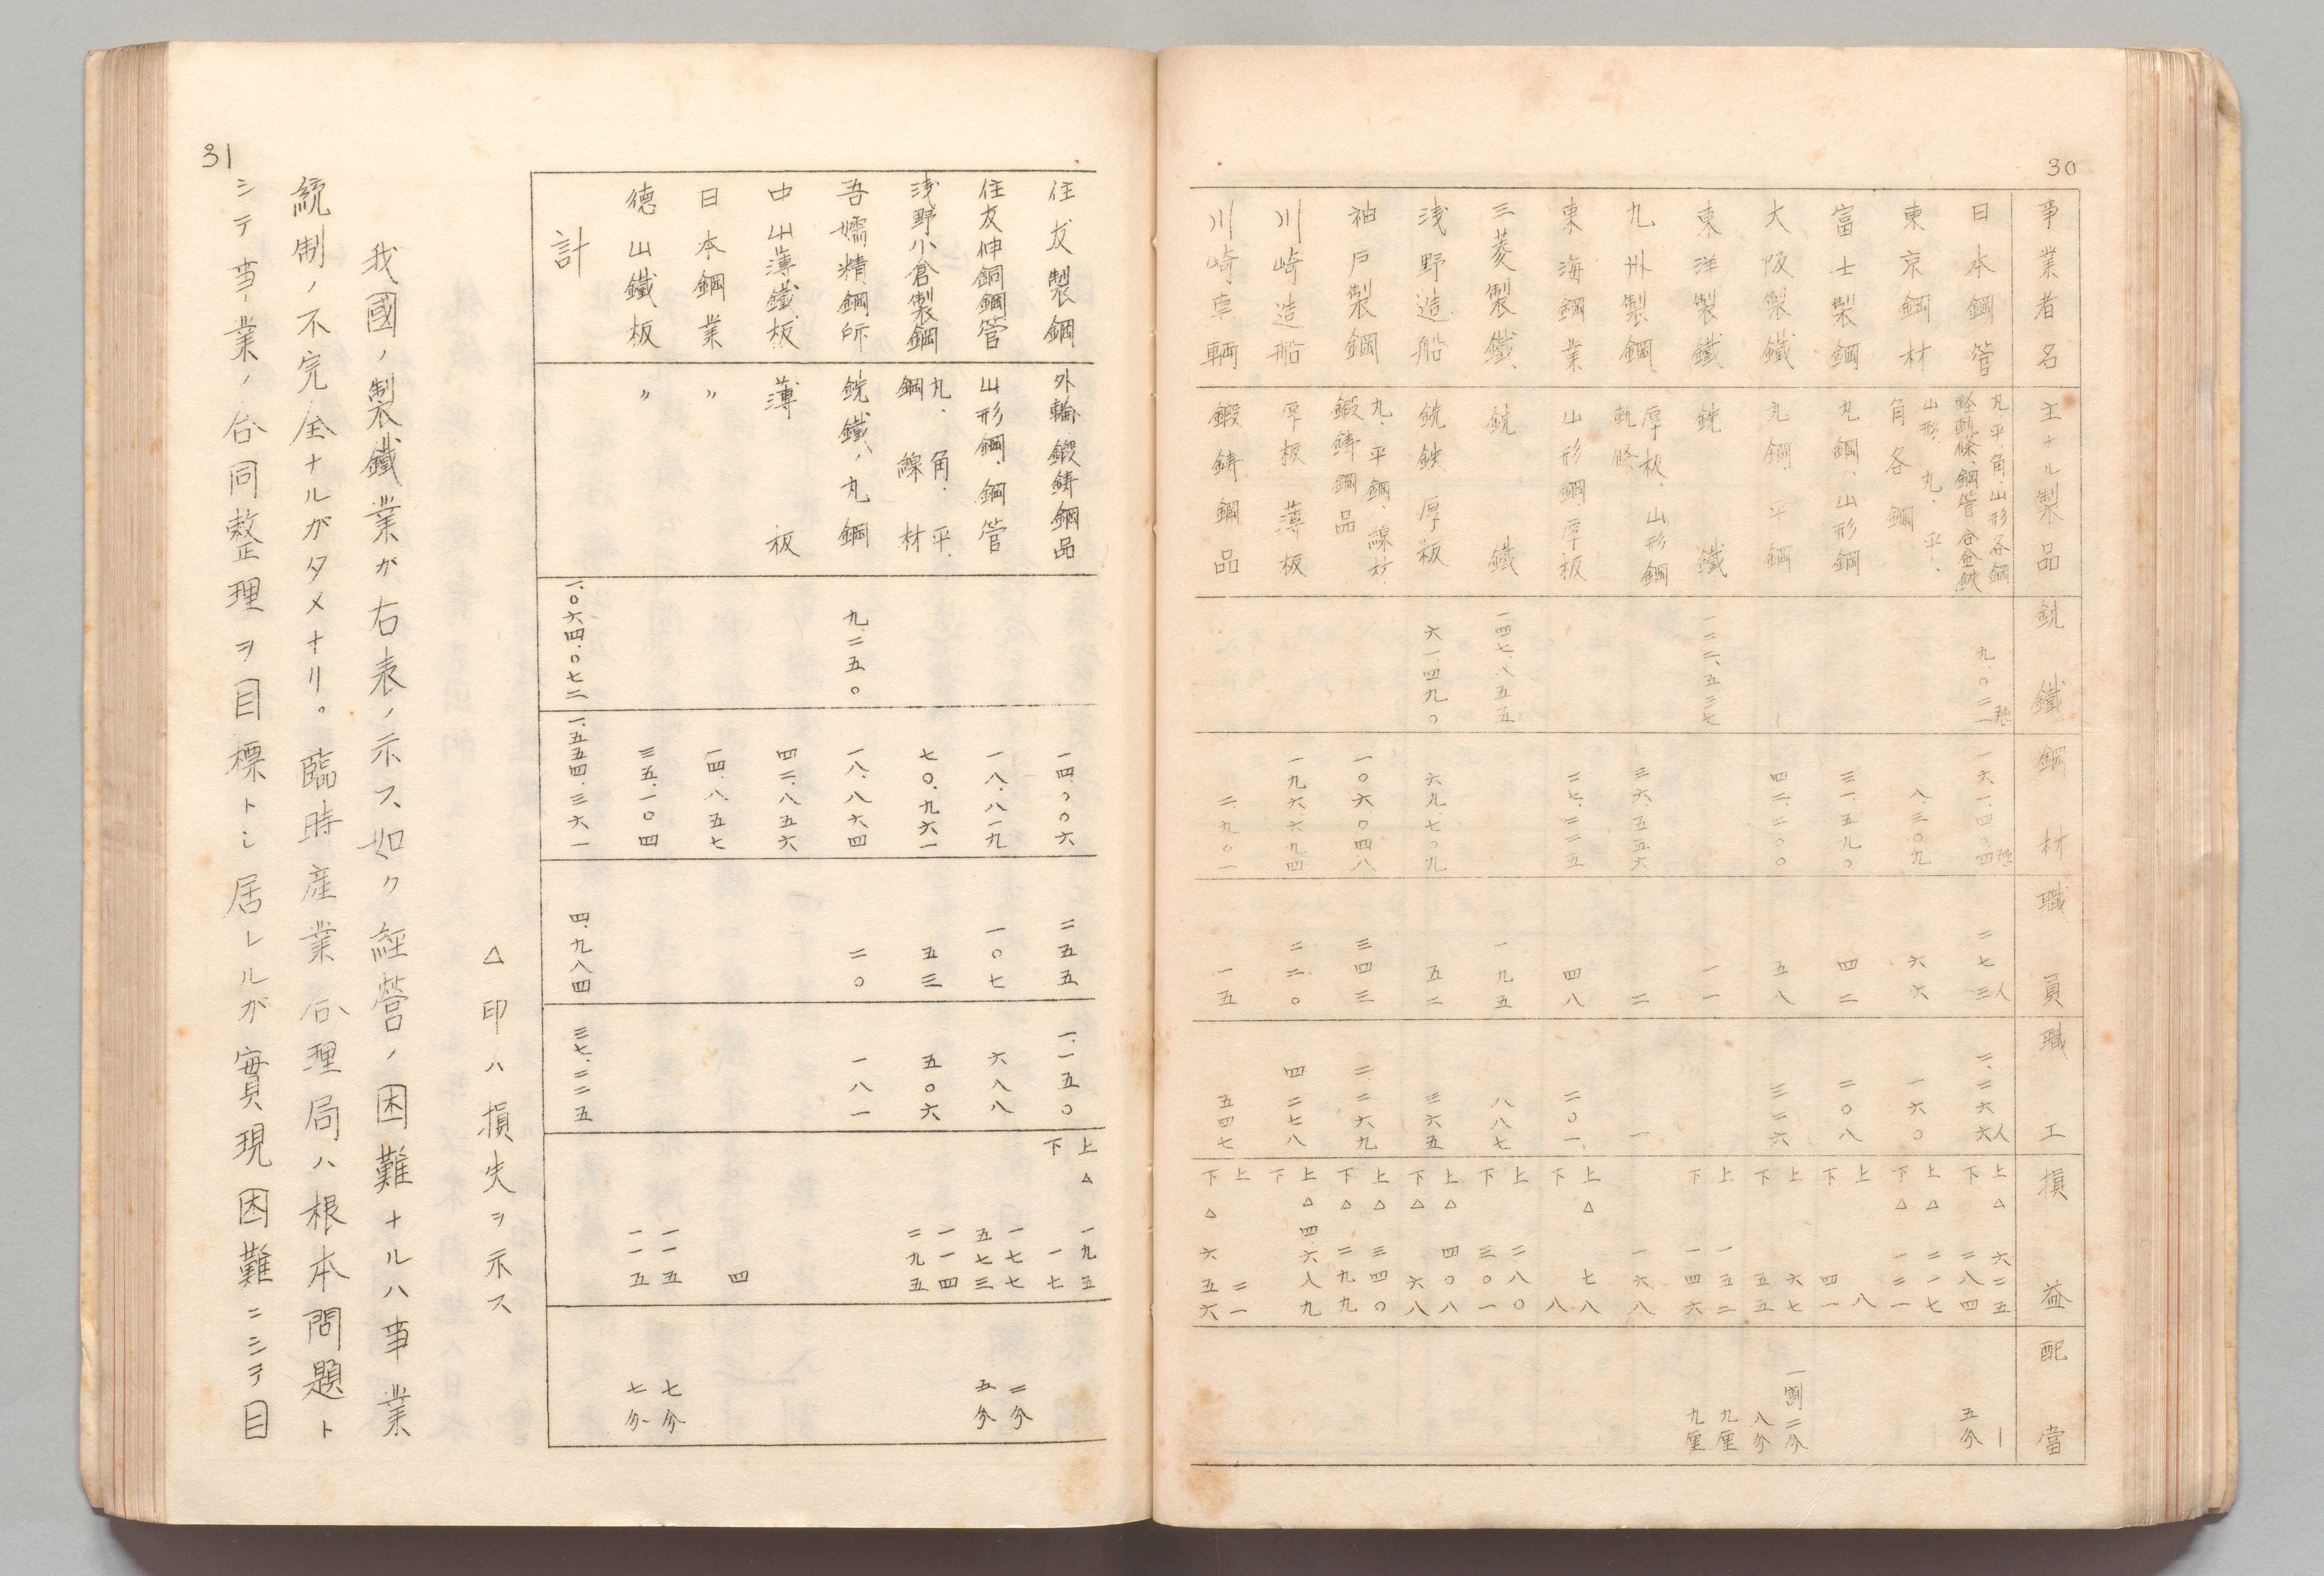 30
事業者名 主ナル製品 銑鐵 鋼材 職員 職工 損益 配當
日本鋼管 丸、平、角、山形各鋼 軽軌條、鋼管 合金鉄 九、〇二一瓲 一六一、四〇四瓲 二七三人 二、二六六人 上△六二五 下二八四 上― 下五分
東京鋼材 山形、丸、平、角各鋼 八、三〇九 六六 一六〇 上△二一七 下△一二一
富士製鋼 丸鋼、山形鋼 三一、五九〇 四二 二〇八 上八 下四一
大阪製鐵 丸鋼 平鋼 四二、二〇〇 五八 三二六 上六七 下五五 一割二分 八分
東洋製鐵 銑鐵 一二二、五三七 一一 上一五二 下一四六 九厘 九厘
九州製鋼 厚板、山形鋼 軌條 三六、五五六 二 一 一六八
東海鋼業 山形鋼、厚板 二七、二二五 四八 二〇一 上△七八 下八
三菱製鐵 銑鐵 一四七、八五五 一九五 八八七 上二八〇 下三〇一
浅野造船 銑鉄 厚板 六一、四九〇 六九、七〇九 五二 三六五 上△四〇八 下△六八
神戸製鋼 丸、平鋼、線材、鍛鋳鋼品 一〇六〇四八 三四三 二、二六九 上△三四〇 下△二九九
川崎造船 厚板 薄板 一九六六九四 二二〇 四二七八 上△四、六八九 下
川崎車輌 鍛鋳鋼品 二、九〇一 一五 五四七 上二一 下△六五六
住友製鋼 外輪鍛鋳鋼品 一四、〇〇六 二五五 一、一五〇 上△一九五 下一七
住友伸銅鋼管 山形鋼、鋼管 一八、八一九 一〇七 六八八 一七七 五七三 二分 五分
浅野小倉製鋼 丸、角、平、鋼線材 七〇、九六一 五三 五〇六 一一四 二九五
吾嬬精鋼所 銑鐵、丸鋼 九、二五〇 一八、八六四 二〇 一八一
中山薄鐵板 薄板 四二、八五六
日本鋼業 〃 一四、八五七 四
徳山鐵板 〃 三五、一〇四 一一五 一一五 七分 七分
計 一、〇六四、〇七二 一、五五四、三六一 四、九八四 三七、二二五
△印ハ損失ヲ示ス
我國ノ製鐵業ガ右表ノ示ス如ク経営ノ困難ナルハ事業
統制ノ不完全ナルガタメナリ。臨時産業合理局ハ根本問題ト
シテ事業ノ合同整理ヲ目標トシ居レルガ實現困難ニシテ目
31